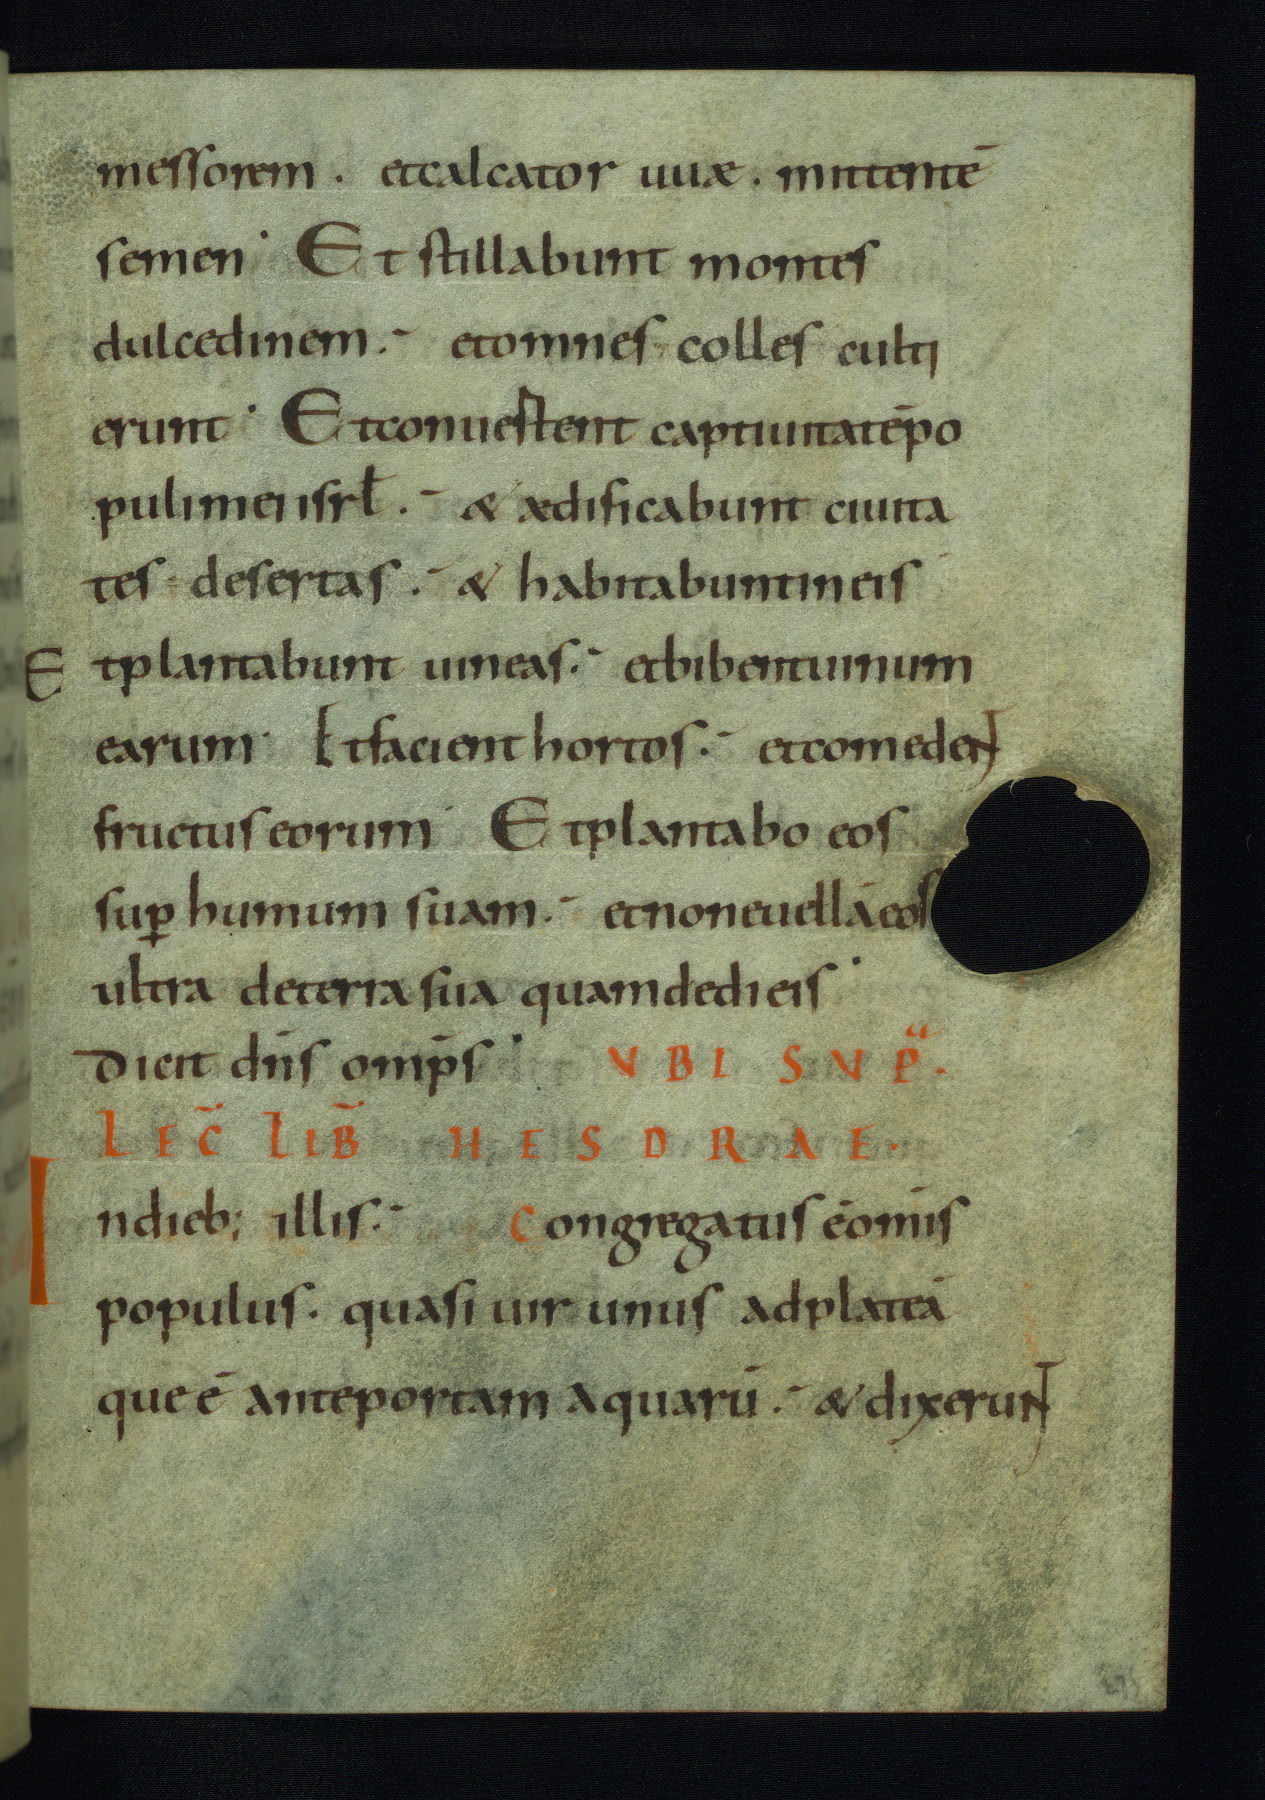 messorem . etcalcator uuæ . mittentē
semen · Et stillabunt montes
dulcedinem .- etomnes colles culti
erunt · Etconuestent captiuitatēpo
pulimei isrł .- & ædificabunt ciuita
tes desertas .- & habitabuntineis
Etplantabunt uineas .- etbibentuinum
earum · Etfacient hortos .- etcomedent
fructus eorum · Etplantabo eos
suꝑ humum suam .- etnoneuellā eos
ultra deterra sua quamdedi eis ·
Dicit dn̄s omp̄s · VBI SVPᵃ.
LEC̄ LIB̄ HESDRAE.
Indieb; illis .- Congregatus ē om̄is
populus . quasi uir unus adplateā
que ē anteportam aquarū .- & dixerunt